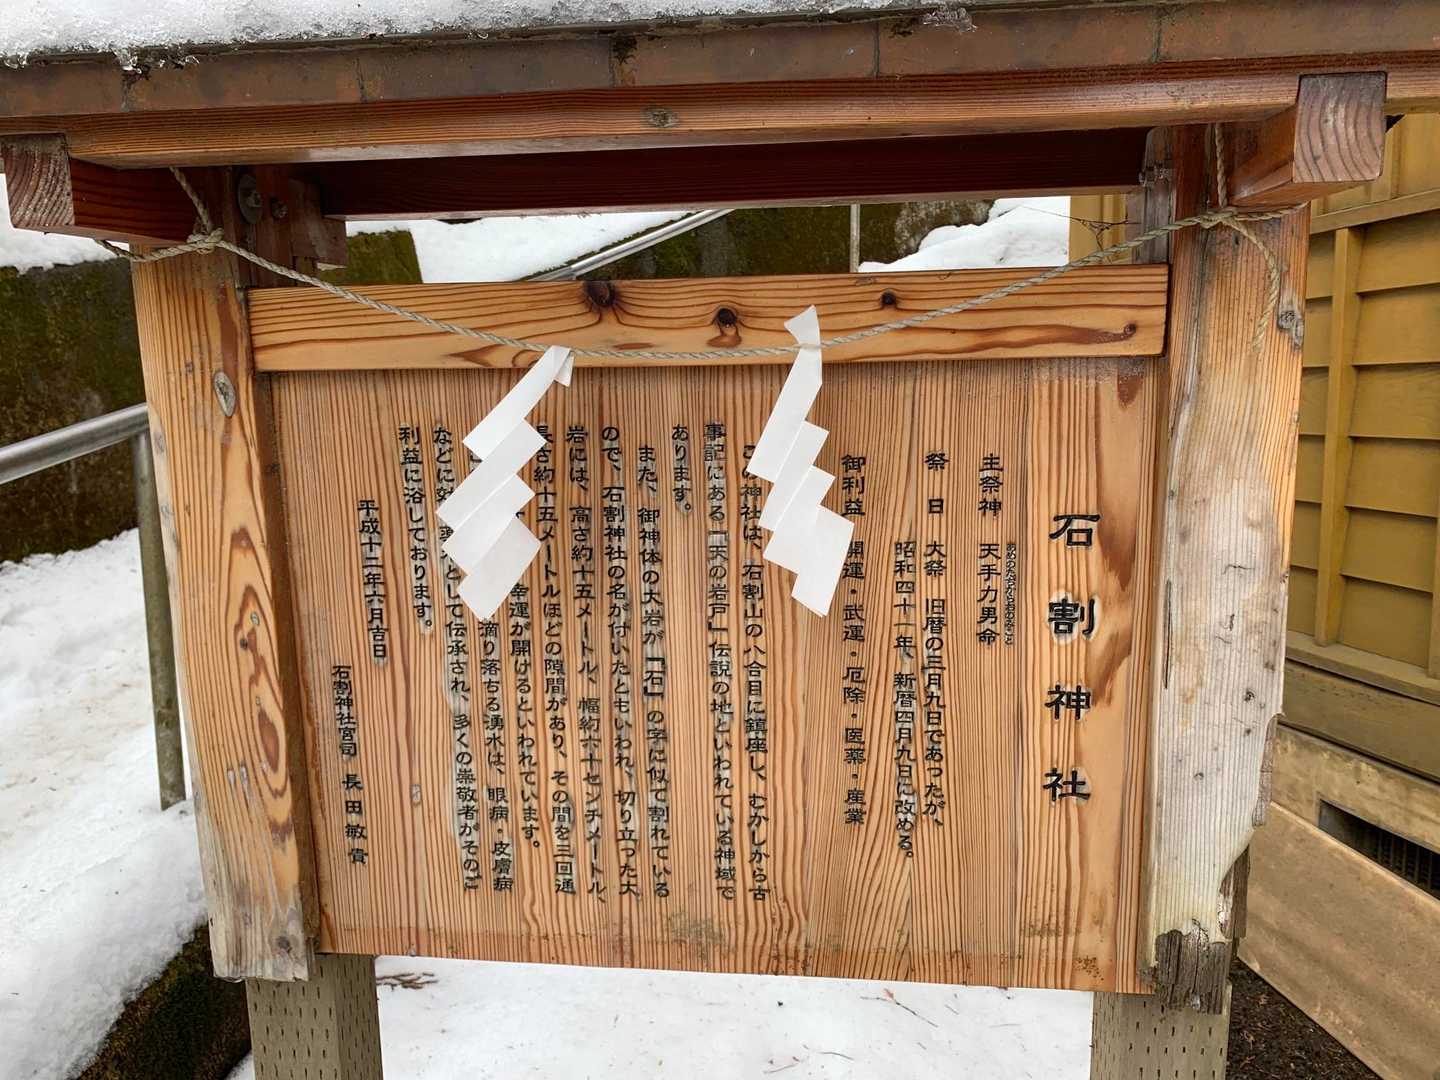 石割神社
主祭神 天手力男命
あめのたぢからおのみこと
祭日 大祭 旧暦の三月九日であったが、
昭和四十一年、新暦四月九日に改める。
御利益 開運・武運・厄除・医薬・産業
この神社は、石割山の八合目に鎮座し、むかしから古
事記にある「天の岩戸」伝説の地といわれている神域で
あります。
また、御神体の大岩が「石」の字に似て割れている
ので、石割神社の名が付いたともいわれ、切り立った大
岩には、高さ約十五メートル、幅約六十センチメートル、
長さ約十五メートルほどの隙間があり、その間を三回通
幸運が開けるといわれています。
滴り落ちる湧水は、眼病・皮膚病
などに効 として伝承され、多くの崇敬者がそのご
利益に浴しております。
平成十二年六月吉日
石割神社宮司 長田敏貴